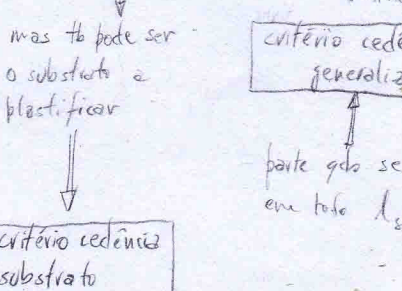 mas tb pode ser
o substrato a
plastificar
critério cedência
substrato
critério cedê
generaliz
parte qdo se
em todo l